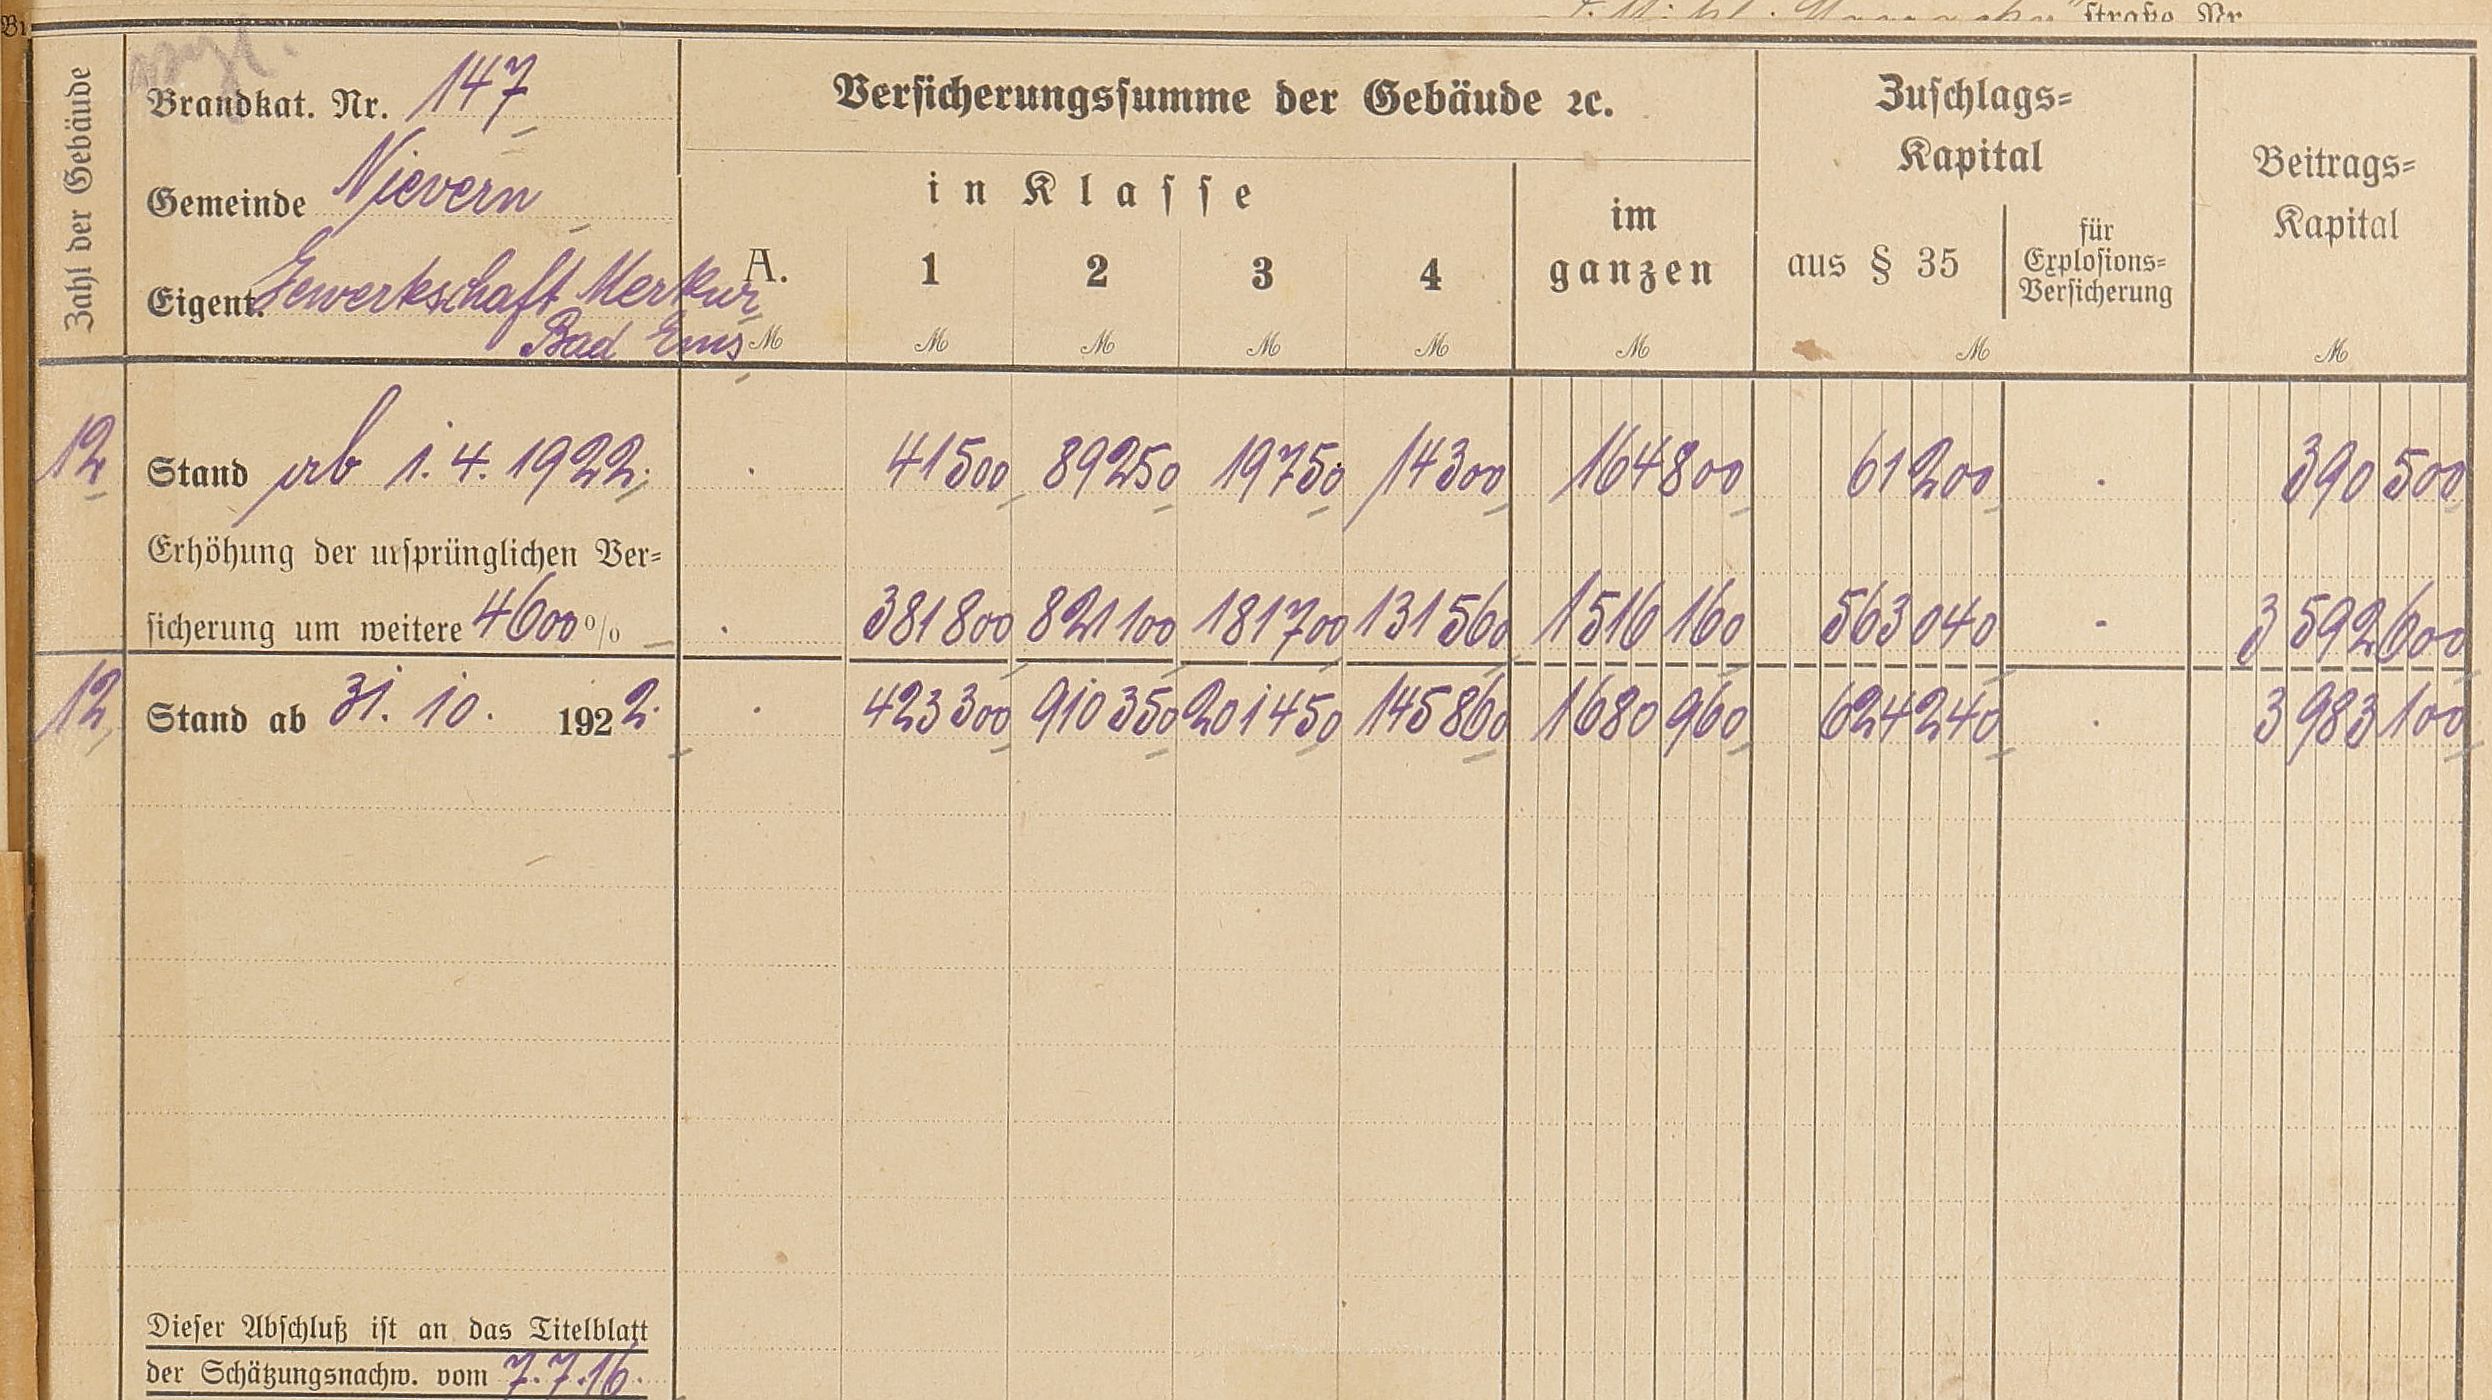 straße Nr.
Zahl der Gebäude
Brandkat. Nr. 147
Gemeinde Nievern
Eigent. Gewerkschaft Merkur
Bad Ems
Versicherungssumme der Gebäude ꝛc.
in Klasse
A. 1 2 3 4
im
ganzen
Zuschlags=
Kapital
aus § 35
für
Explosions=
Versicherung
Beitrags=
Kapital
M M M M M M M M
12 Stand ab 1.4.1922. . 41500 89250 19750 14300 164800 61200 . 390500
Erhöhung der ursprünglichen Ver=
sicherung um weitere 4600% . 381800 821100 181700 131560 1516160 563040 - 3592600
12 Stand ab 31. 10. 1922. . 423300 910350 201450 145860 1680960 624240 . 3983100
Dieser Abschluß ist an das Titelblatt
der Schätzungsnachw. vom 7.7.16.